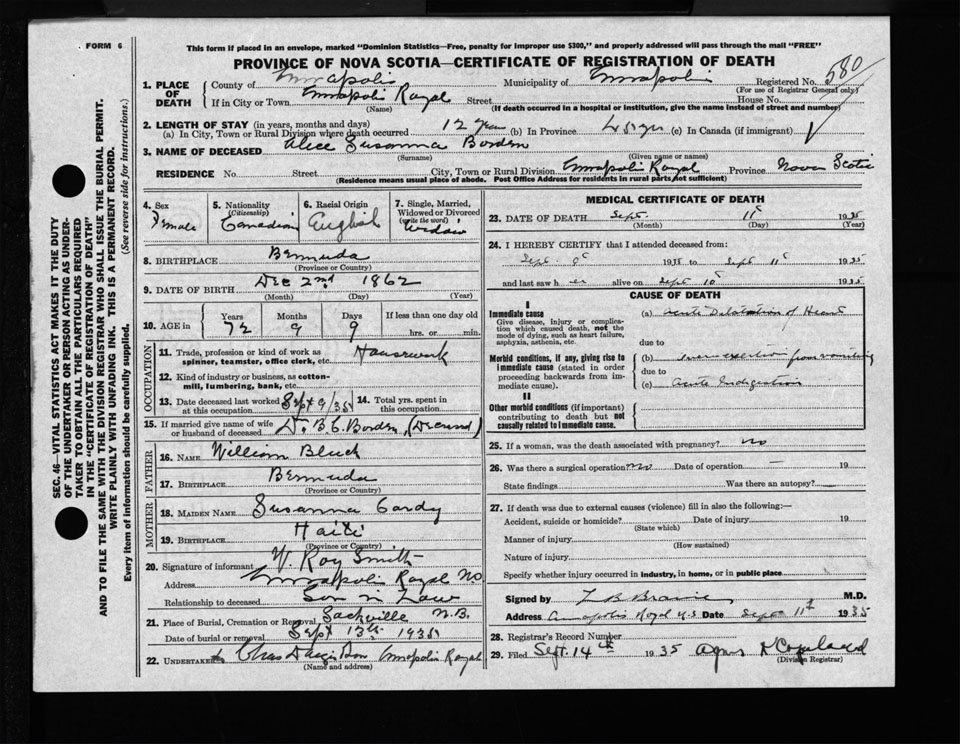 FORM 6
This form if placed in an envelope, marked "Dominion Statistics—Free, penalty for improper use $300," and properly addressed will pass through the mail "FREE"
PROVINCE OF NOVA SCOTIA—CERTIFICATE OF REGISTRATION OF DEATH
SEC. 46—VITAL STATISTICS ACT MAKES IT THE DUTY
OF THE UNDERTAKER OR PERSON ACTING AS UNDER-
TAKER TO OBTAIN ALL THE PARTICULARS REQUIRED
IN THE "CERTIFICATE OF REGISTRATION OF DEATH"
AND TO FILE THE SAME WITH THE DIVISION REGISTRAR WHO SHALL ISSUE THE BURIAL PERMIT.
WRITE PLAINLY WITH UNFADING INK. THIS IS A PERMANENT RECORD.
Every item of information should be carefully supplied. (See reverse side for instructions.)
1. PLACE OF DEATH County of Annapolis Municipality of Annapolis Registered No. 580
(For use of Registrar General only)
If in City or Town Annapolis Royal Street House No.
(Name) (If death occurred in a hospital or institution, give the name instead of street and number)
2. LENGTH OF STAY (in years, months and days)
(a) In City, Town or Rural Division where death occurred 12 years (b) In Province (c) In Canada (if immigrant)
3. NAME OF DECEASED Alice Susanna Borden
(Surname) (Given name or names)
RESIDENCE No. Street City, Town or Rural Division Annapolis Royal Province Nova Scotia
(Residence means usual place of abode. Post Office Address for residents in rural parts not sufficient)
4. Sex Female
5. Nationality (Citizenship) Canadian
6. Racial Origin English
7. Single, Married, Widowed or Divorced (write the word) Widow
8. BIRTHPLACE Bermuda
(Province or Country)
9. DATE OF BIRTH Dec 2nd 1862
(Month) (Day) (Year)
10. AGE in Years 72 Months 9 Days 9 If less than one day old hrs. or min.
OCCUPATION
11. Trade, profession or kind of work as spinner, teamster, office clerk, etc. Housework
12. Kind of industry or business, as cotton-mill, lumbering, bank, etc.
13. Date deceased last worked at this occupation Sept 9/35 14. Total yrs. spent in this occupation
15. If married give name of wife or husband of deceased Dr. B C Borden (Deceased)
FATHER
16. NAME William Bluck
17. BIRTHPLACE Bermuda
(Province or Country)
MOTHER
18. MAIDEN NAME Susanna Cardy
19. BIRTHPLACE Haiti
(Province or Country)
20. Signature of informant W. Roy Smith
Address Annapolis Royal NS
Relationship to deceased Son in Law
21. Place of Burial, Cremation or Removal Sackville N.B.
Date of burial or removal Sept 13th 1935
22. UNDERTAKER Chas Dargie & Son Annapolis Royal
(Name and address)
MEDICAL CERTIFICATE OF DEATH
23. DATE OF DEATH Sept. 11 1935
(Month) (Day) (Year)
24. I HEREBY CERTIFY that I attended deceased from:
Sept 9 1935 to Sept 11 1935
and last saw h er alive on Sept 10 1935
CAUSE OF DEATH
I
Immediate cause
Give disease, injury or complication which caused death, not the mode of dying, such as heart failure, asphyxia, asthenia, etc.
(a) Acute Dilatation of Heart
due to
Morbid conditions, if any, giving rise to immediate cause (stated in order proceeding backwards from immediate cause).
(b) from vomiting
due to
(c) Acute Indigestion
II
Other morbid conditions (if important) contributing to death but not causally related to immediate cause.
25. If a woman, was the death associated with pregnancy? no
26. Was there a surgical operation? no Date of operation — 19
State findings Was there an autopsy?
27. If death was due to external causes (violence) fill in also the following:—
Accident, suicide or homicide? Date of injury 19
(State which)
Manner of injury
(How sustained)
Nature of injury
Specify whether injury occurred in industry, in home, or in public place
Signed by M.D.
Address Annapolis Royal N.S. Date Sept 11th 1935
28. Registrar's Record Number
29. Filed Sept. 14th 1935 Agnes H Copeland
(Division Registrar)